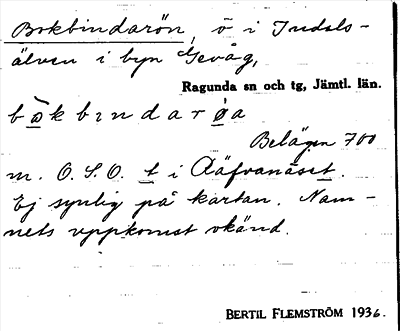 Bokbindarön, ö i Indals-
älven i byn Gevåg,
Ragunda sn och tg, Jämtl. län.
bo̠kbɪndarø̠a
Belägen 700
m. O.S.O. t i Räfvanäset.
Ej synlig på kartan. Nam-
nets uppkomst okänd.
BERTIL FLEMSTRÖM 1936.